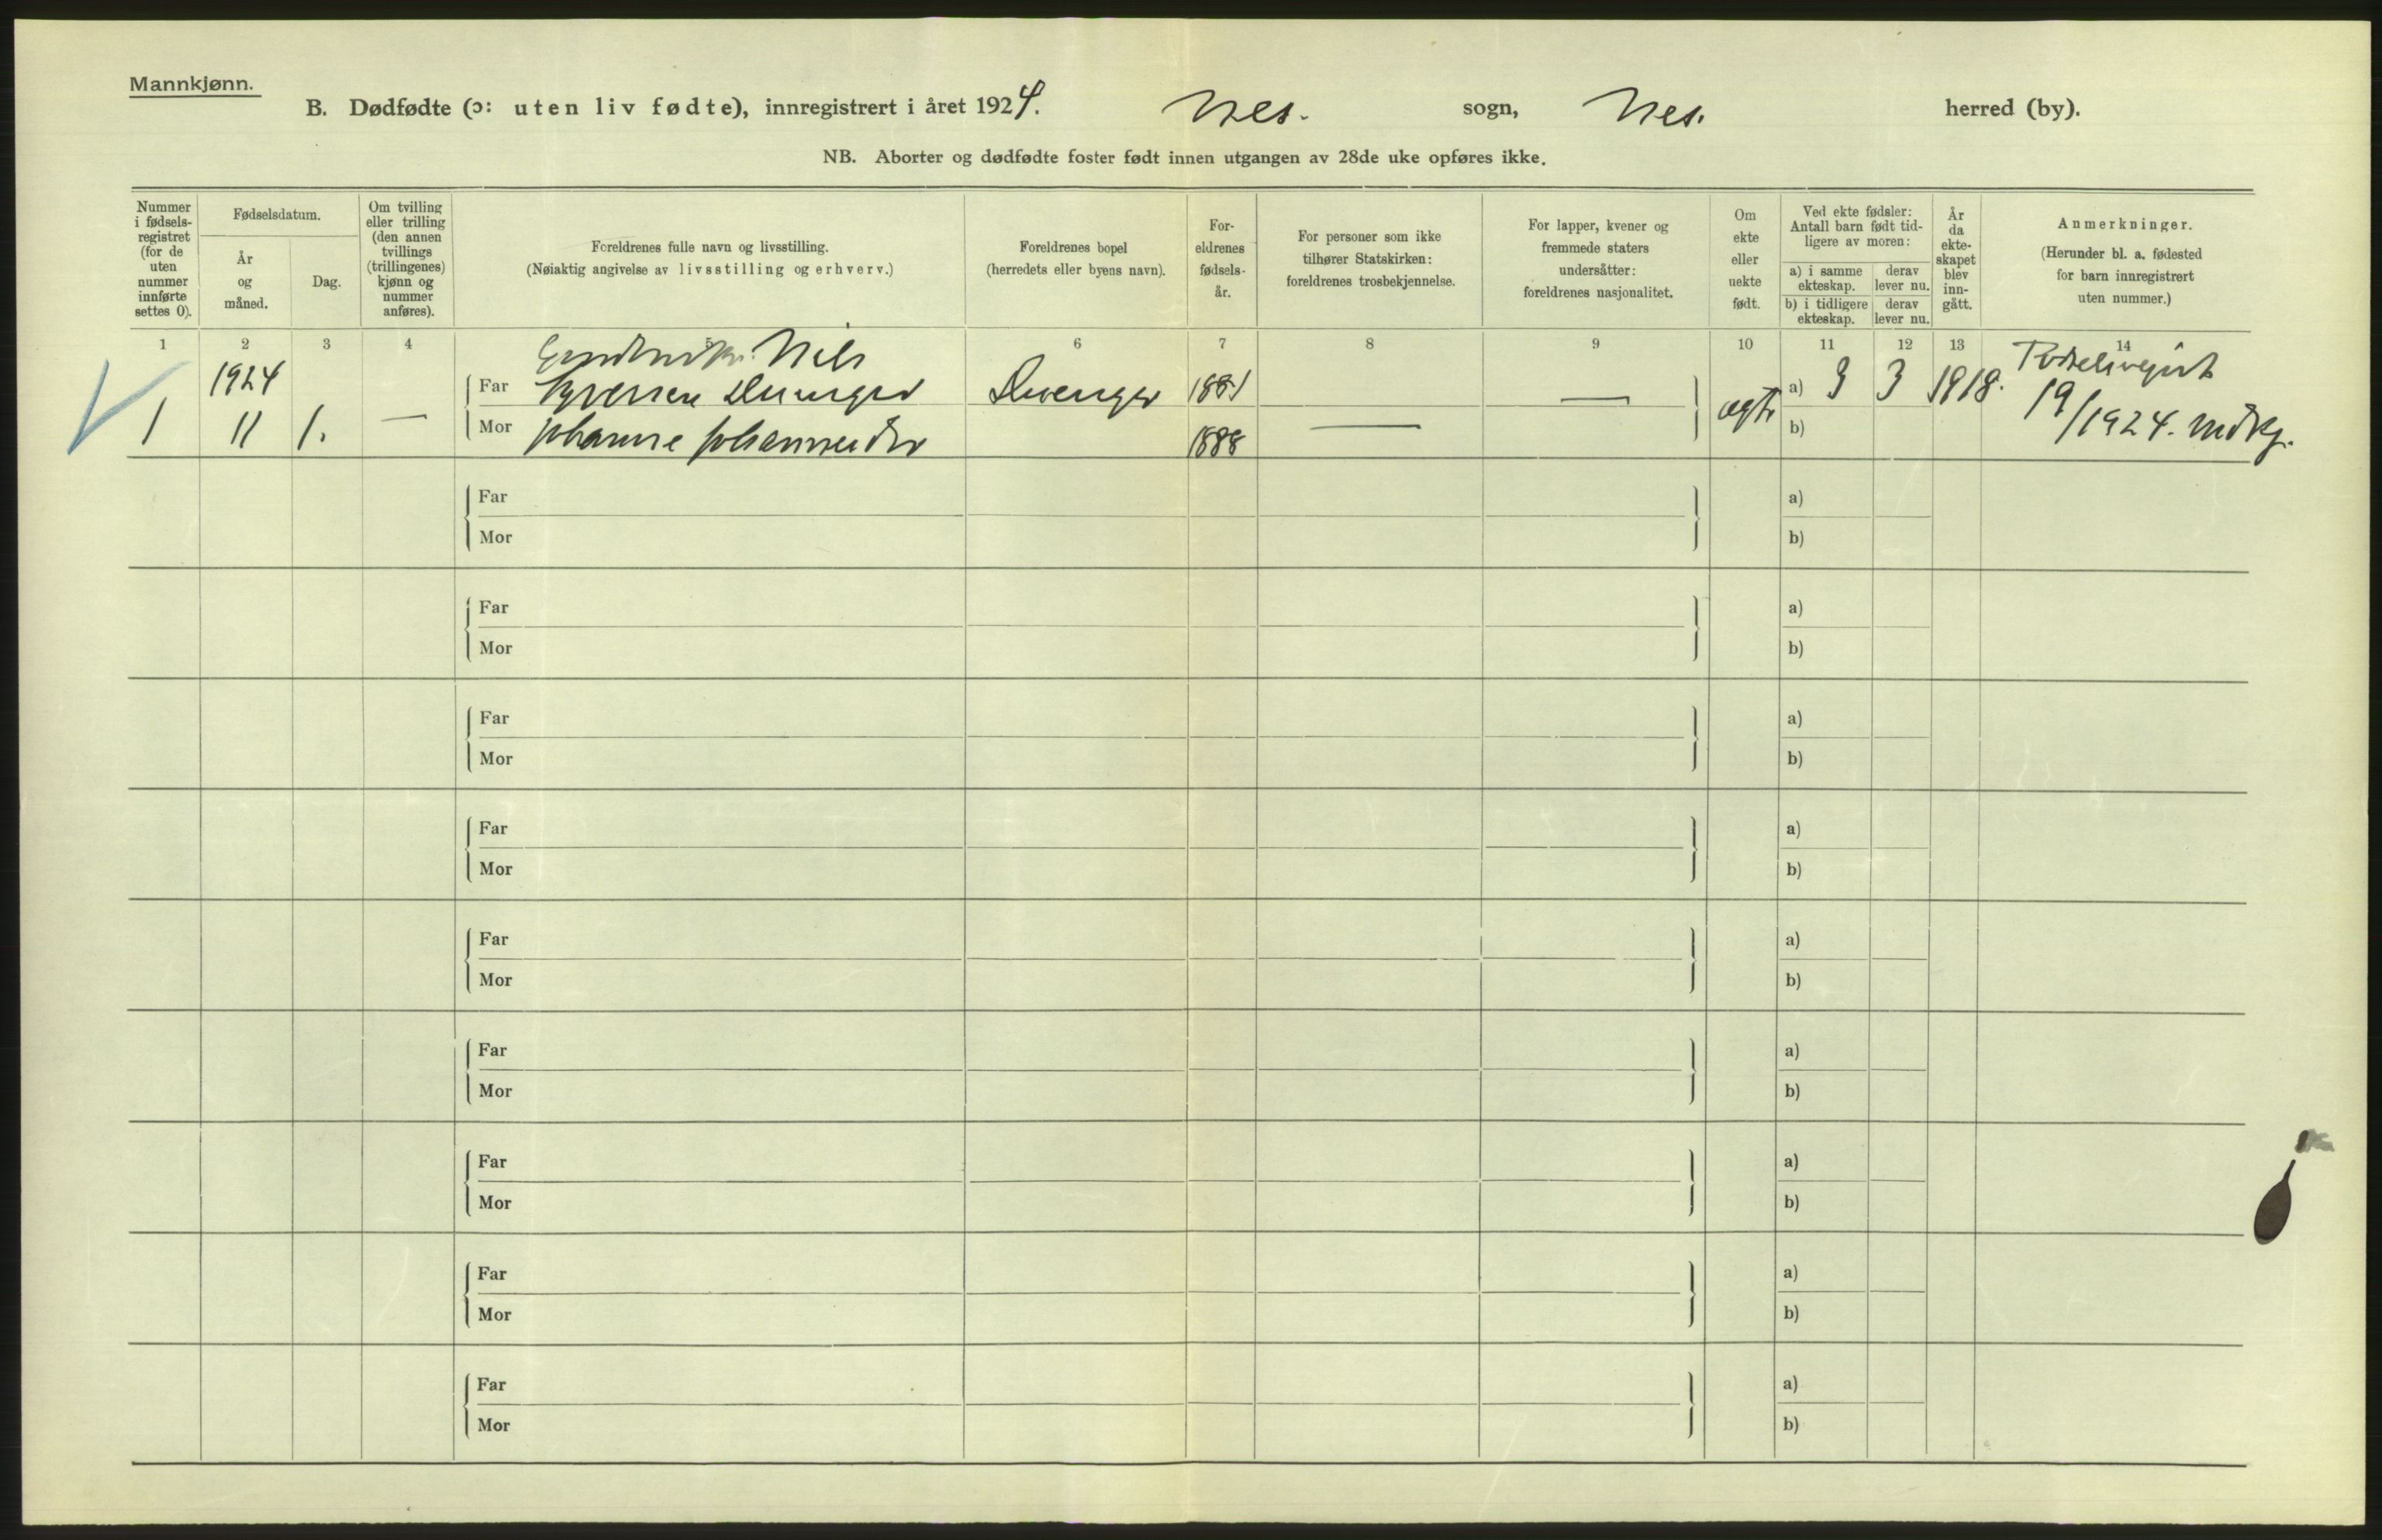 Mannkjønn.
B. Dødfødte (ɔ: uten liv fødte), innregistrert i året 1924. Nes. sogn, Nes. herred (by).
NB. Aborter og dødfødte foster født innen utgangen av 28de uke opføres ikke.
Nummer
i fødsels-
registret
(for de
uten
nummer
innførte
settes 0).
Fødselsdatum.
År
og
måned.
Dag.
Om tvilling
eller trilling
(den annen
tvillings
(trillingenes)
kjønn og
nummer
anføres).
Foreldrenes fulle navn og livsstilling.
(Nøiaktig angivelse av livsstilling og erhverv.)
Foreldrenes bopel
(herredets eller byens navn).
For-
eldrenes
fødsels-
år.
For personer som ikke
tilhører Statskirken:
foreldrenes trosbekjennelse.
For lapper, kvener og
fremmede staters
undersåtter:
foreldrenes nasjonalitet.
Om
ekte
eller
uekte
født.
Ved ekte fødsler:
Antall barn født tid-
ligere av moren:
a) i samme
ekteskap.
derav
lever nu.
b) i tidligere
ekteskap.
derav
lever nu.
År
da
ekte-
skapet
blev
inn-
gått.
Anmerkninger.
(Herunder bl. a. fødested
for barn innregistrert
uten nummer.)
1 2 3 4 5 6 7 8 9 10 11 12 13 14
Nils
1924 Far 1881 a) 3 3 1918.
1 11 1. — Mor Johanne 1888 — — b) 19/1924.
Far a)
Mor b)
Far a)
Mor b)
Far a)
Mor b)
Far a)
Mor b)
Far a)
Mor b)
Far a)
Mor b)
Far a)
Mor b)
Far a)
Mor b)
Far a)
Mor b)